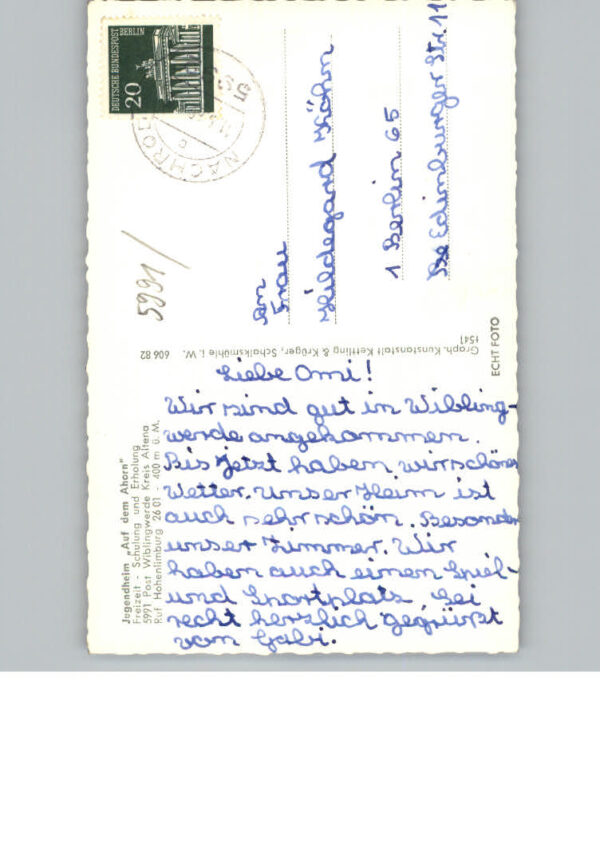 Liebe Omi!
Wir sind gut in Wibling-
werde angekommen.
Bis jetzt haben wir schönes
Wetter. Unser Heim ist
auch sehr schön. Besonders
unser Zimmer. Wir
haben auch einen Spiel-
und Sportplatz. Sei
recht herzlich gegrüßt
von Gabi.
An
Frau
Hildegard Köhn
1 Berlin 65
Edinburger Str. 11
5991/
DEUTSCHE BUNDESPOST
BERLIN
20
NACHROD
Jugendheim „Auf dem Ahorn"
Freizeit - Schulung und Erholung
5991 Post Wiblingwerde Kreis Altena
Ruf Hohenlimburg 26 01 - 400 m ü. M.
Graph. Kunstanstalt Kettling & Krüger, Schalksmühle i. W. 606 82
1541
ECHT FOTO